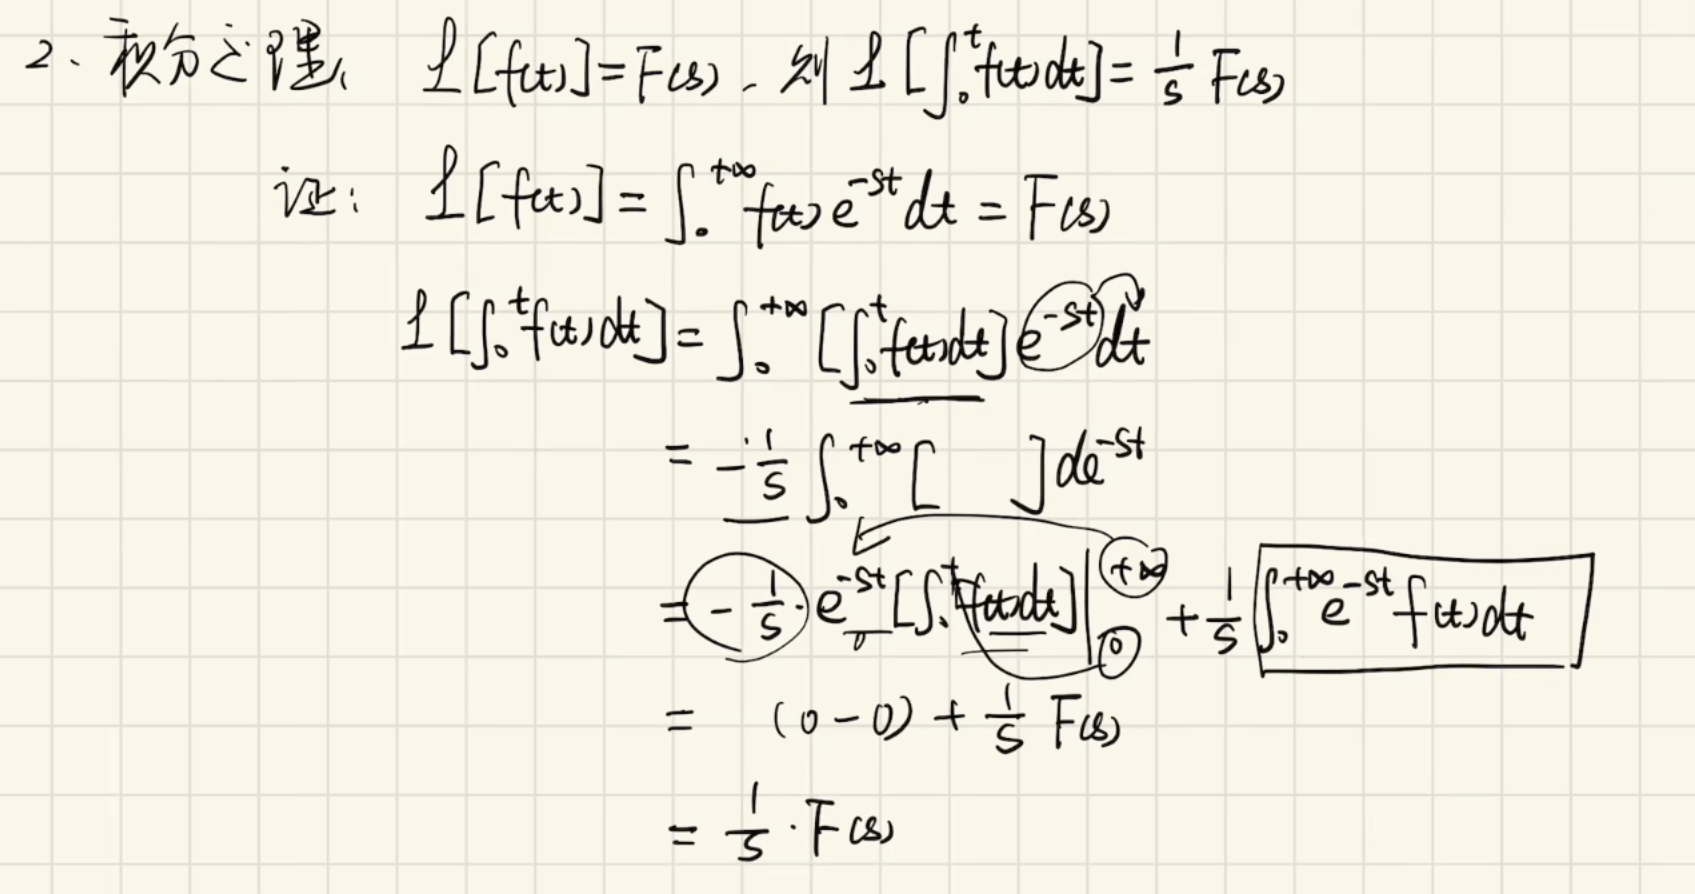 2、积分定理、 ℒ[f(t)]=F(s)、则 ℒ[∫₀ᵗf(t)dt]=1/s F(s)
证: ℒ[f(t)]=∫₀⁺∞ f(t)e^-st dt=F(s)
ℒ[∫₀ᵗf(t)dt]=∫₀⁺∞[∫₀ᵗf(t)dt]e^-st dt
=-1/s ∫₀⁺∞[ ]de^-st
=-1/s·e^-st[∫₀ᵗf(t)dt]|₀⁺∞+1/s ∫₀⁺∞e^-st f(t)dt
= (0-0)+1/s F(s)
=1/s·F(s)